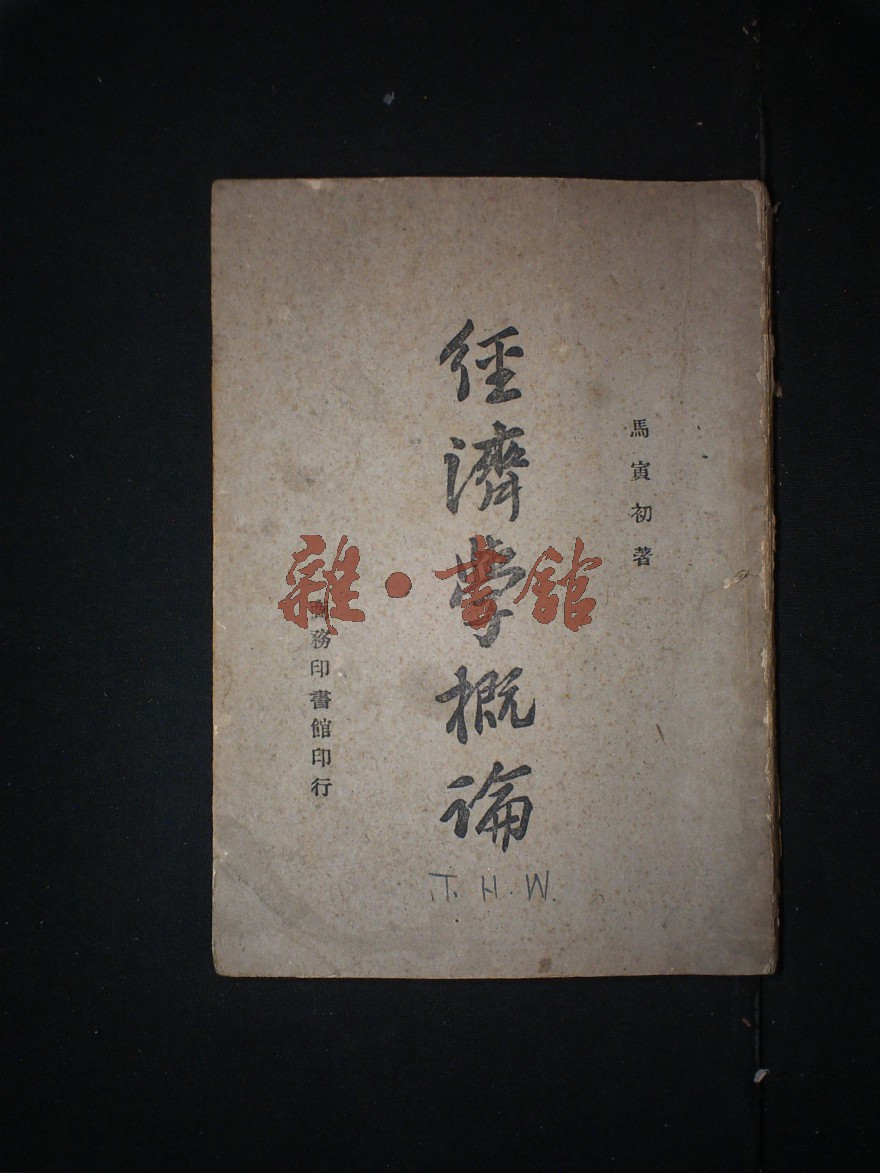 馬寅初著
經濟學概論
商務印書館印行
T. H. W.
雜·書館